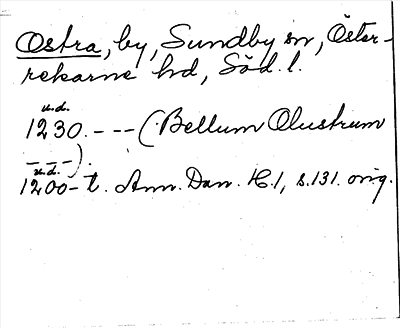 Ostra, by, Sundby sn, Öster-
rekarne hd, Söd. l.
u.d.
1230. - - - (Bellum Olustrum
- - -).
u.d.
1200-t. Ann. Dan. H. 1, s. 131. orig.